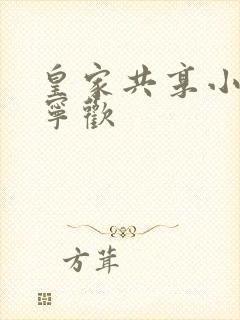 皇家共享小
寧歡
方茸